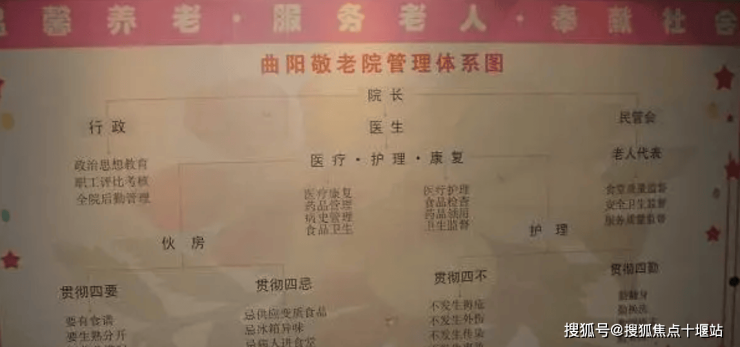 温馨养老·服务老人·奉献社会
曲阳敬老院管理体系图
院长
行政
医生
民管会
政治思想教育
职工评比考核
全院后勤管理
医疗·护理·康复
老人代表
医疗康复
药品管理
病史管理
食品卫生
医疗护理
食品检查
药品
卫生监督
食堂质量监督
安全卫生监督
服务质量监督
伙房
护理
贯彻四要
贯彻四忌
贯彻四不
贯彻四勤
要有食谱
要生熟分开
忌供应变质食品
忌冰箱异味
忌病人进食堂
不发生褥疮
不发生外伤
不发生传染
搜狐号@搜狐焦点十堰站